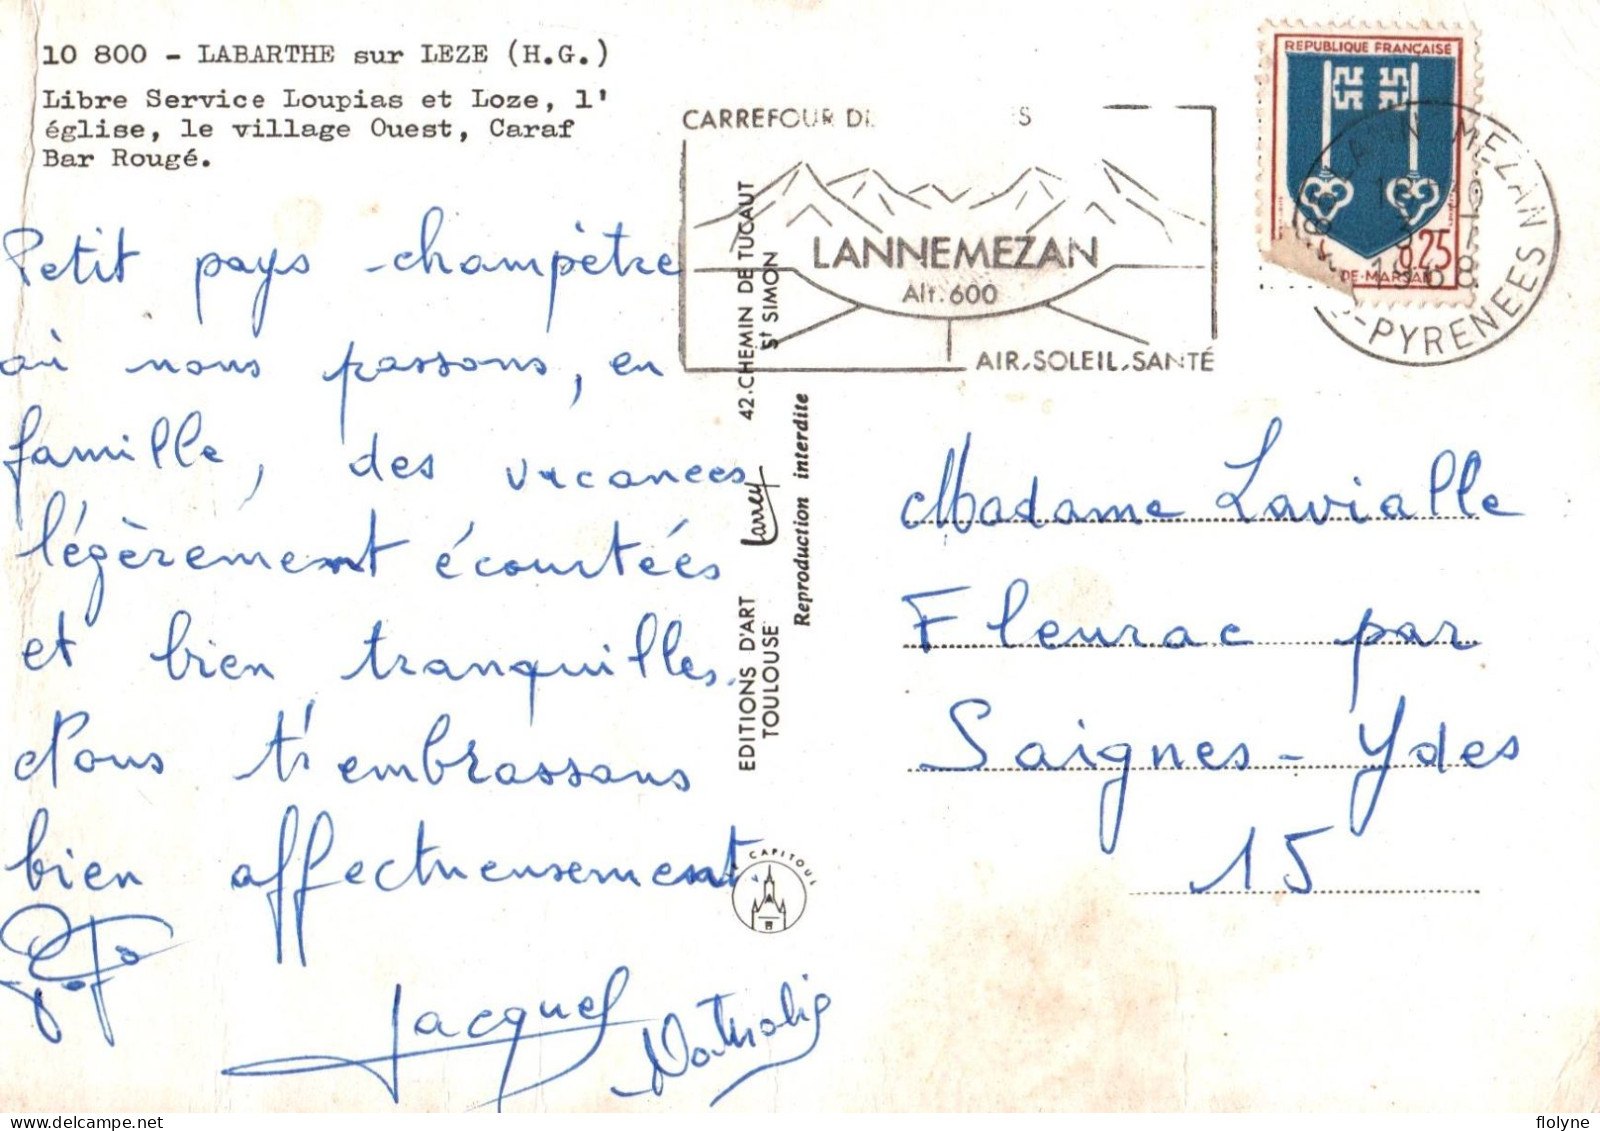 10 800 - LABARTHE sur LEZE (H.G.)
Libre Service Loupias et Loze, l'
église, le village Ouest, Caraf
Bar Rougé.
Petit pays champêtre
où nous passons, en
famille, des vacances
légèrement écourtées
et bien tranquilles.
Nous t'embrassons
bien affectueusement.
Jacques
Nathalie
CARREFOUR
LANNEMEZAN
Alt. 600
AIR, SOLEIL, SANTÉ
42. CHEMIN DE TUCAUT
St SIMON
Larrey
Reproduction interdite
EDITIONS D'ART
TOULOUSE
CAPITOUL
REPUBLIQUE FRANÇAISE
0.25
DE-MARSAN
LANNEMEZAN
1968
PYRENEES
Madame Lavialle
Fleurac par
Saignes - Ydes
15
folyne